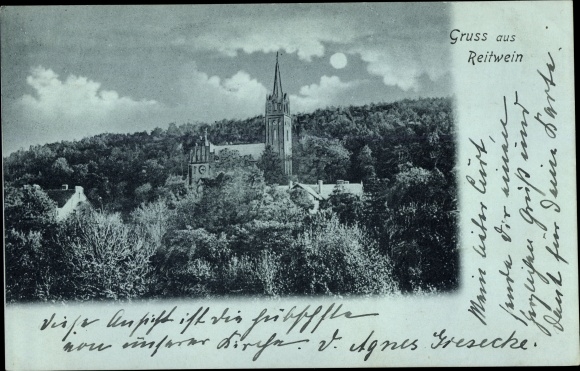 Gruss aus
Reitwein
Mein lieber Curt,
sende dir einen
herzlichen Gruß und
Dank für deine Karte.
Diese Ansicht ist die hübscheste
von unserer Kirche. D. Agnes Giesecke.